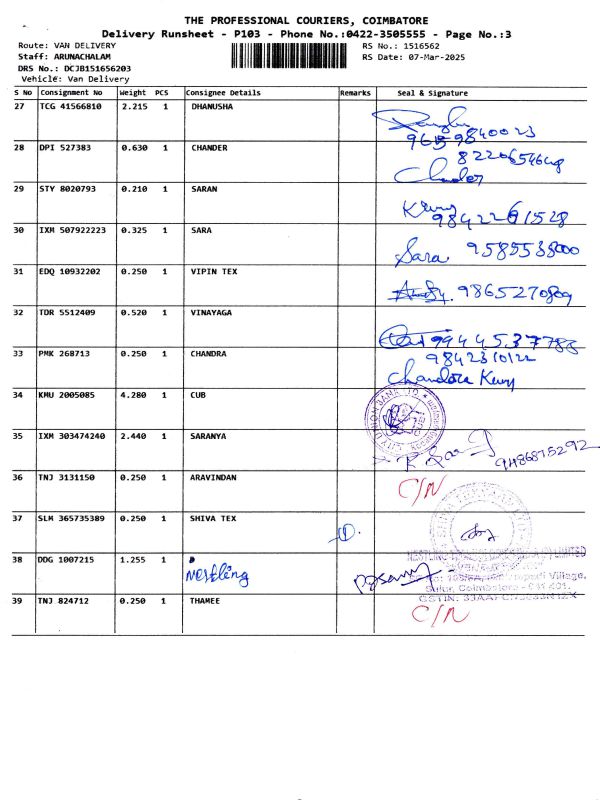 THE PROFESSIONAL COURIERS, COIMBATORE
Delivery Runsheet - P103 - Phone No.:0422-3505555 - Page No.:3
Route: VAN DELIVERY
RS No.: 1516562
Staff: ARUNACHALAM
RS Date: 07-Mar-2025
DRS No.: DCJB151656203
Vehicle: Van Delivery
S No Consignment No Weight PCS Consignee Details Remarks Seal & Signature
27 TCG 41566810 2.215 1 DHANUSHA
28 DPI 527383 0.630 1 CHANDER
Chander
29 STY 8020793 0.210 1 SARAN
30 IXM 507922223 0.325 1 SARA
Sara
31 EDQ 10932202 0.250 1 VIPIN TEX
32 TDR 5512409 0.520 1 VINAYAGA
33 PMK 268713 0.250 1 CHANDRA
9842310122
34 KMU 2005085 4.280 1 CUB
35 IXM 303474240 2.440 1 SARANYA
36 TNJ 3131150 0.250 1 ARAVINDAN C/N
37 SLM 365735389 0.250 1 SHIVA TEX
38 DDG 1007215 1.255 1
Nestling
39 TNJ 824712 0.250 1 THAMEE C/N